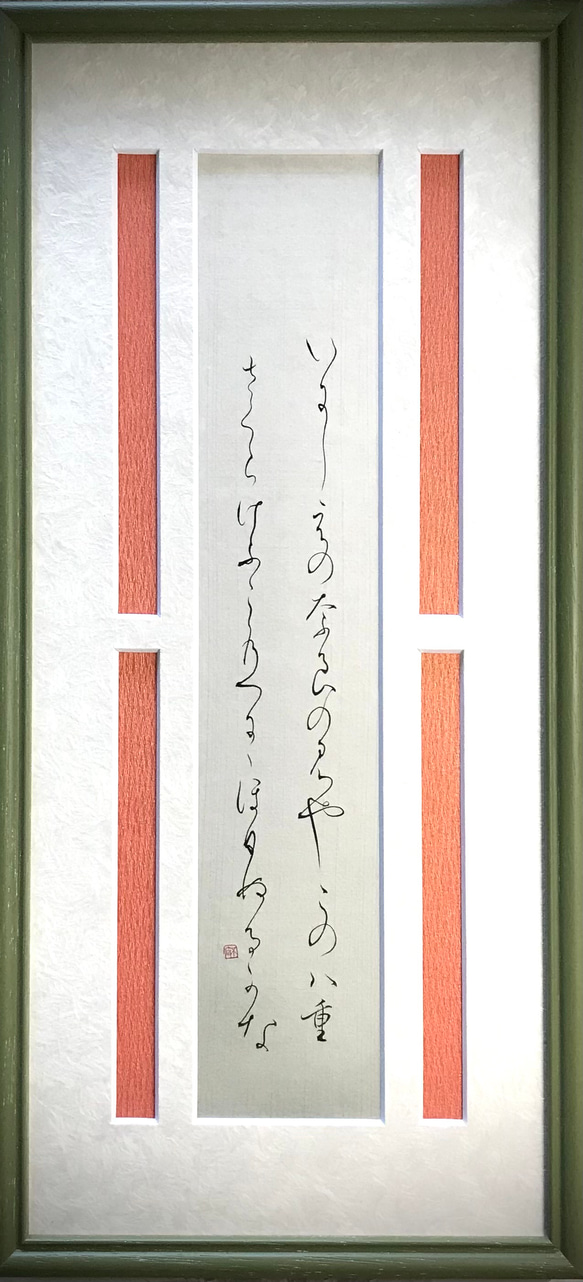 いにしへの奈良のみやこの八重
さくらけふこゝのへにゝほひぬるかな